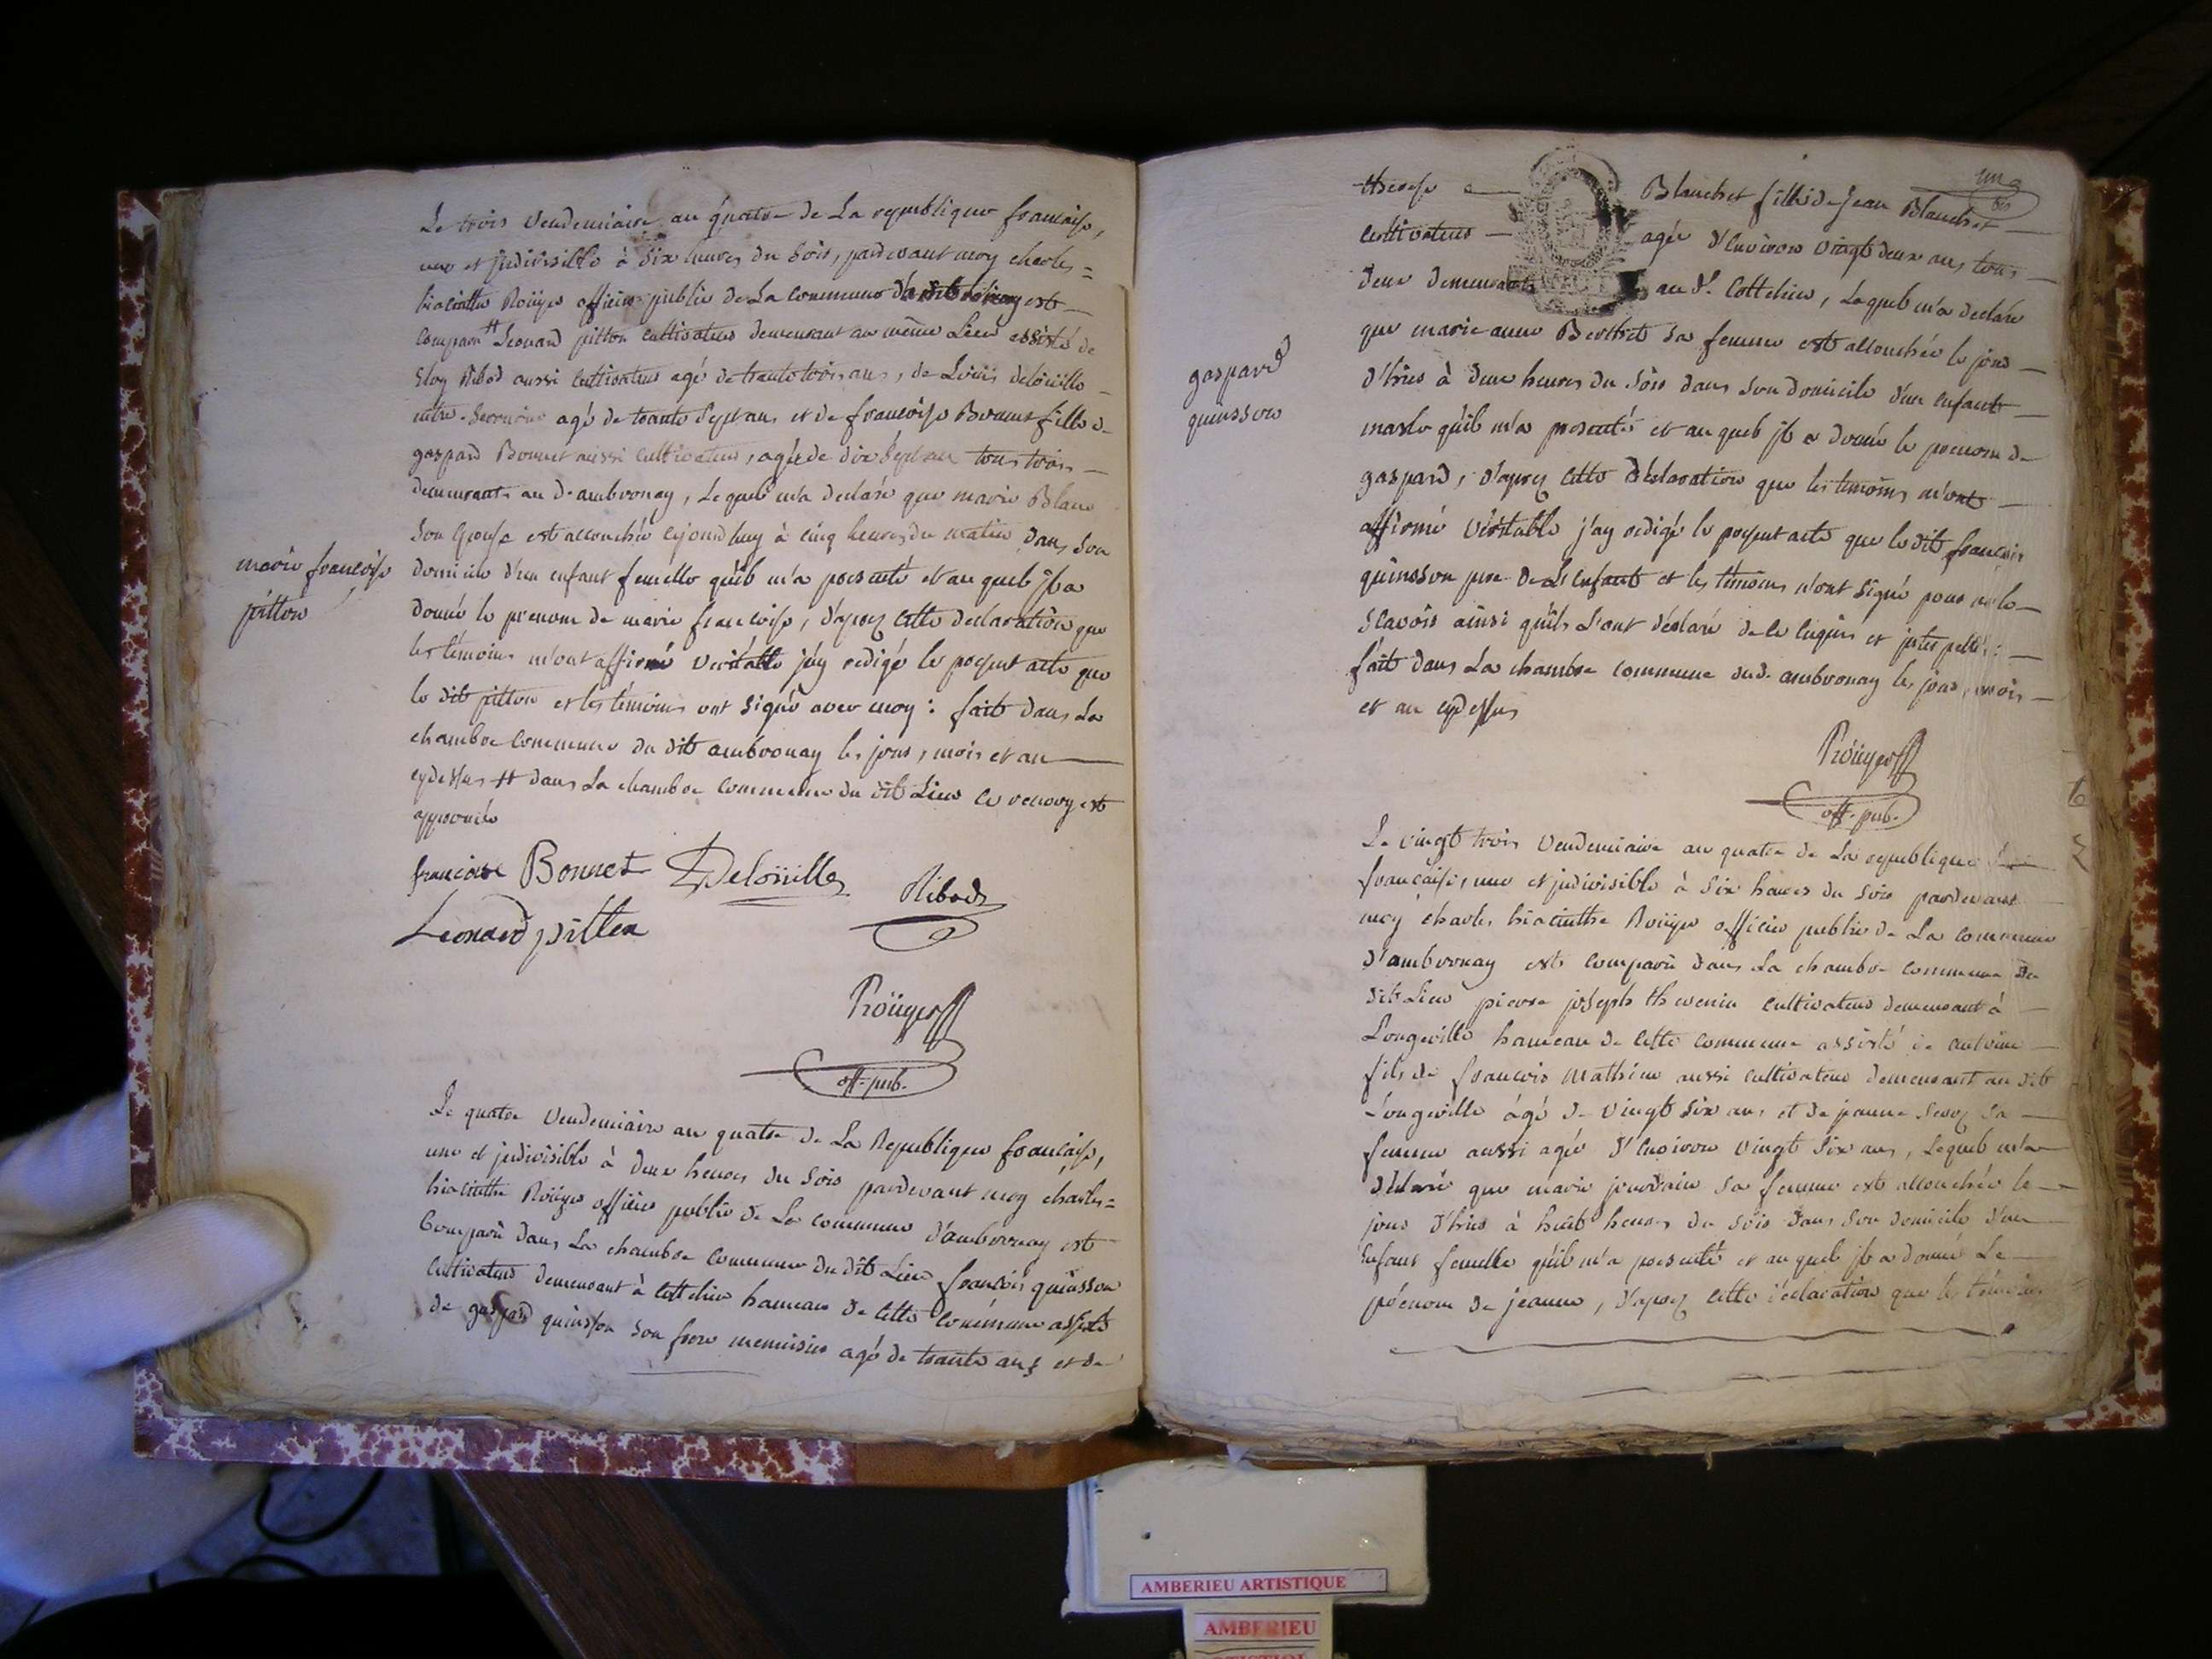 Le trois vendemiaire an quatre de La republique francaise,
une et jndivisible à Six heures du Soir, pardevant moy charles=
hiacinthe Roüyer officier public de La commune est
comparu # Leonard pitton cultivateur demeurant au même Lieu assisté de
Eloy Ribod aussi cultivateur agé de trante trois ans, de Loüis deloüille
agé de trante Sept ans et de françoise Bonnet fille de
gaspard Bonnet aussi cultivateur, agée de dix Sept ans tous trois
demeurants au d. ambronay, Lequel m'a declaré que marie Blanc
Son Epouse est accouchée cejourdhuy à cinq heures du matin dans Son
domicile d'un enfant femelle qu'il m'a presenté et au quel jl a
donné le prenom de marie francoise, d'aprez cette declaration que
les témoins m'ont affirmé veritable j'ay redigé le present acte que
le dit pitton et les témoins ont Signé avec moy : fait dans La
chambre commune du dit ambronay les jour, mois et an
cydessus # dans La chambre commune du dit Lieu ce renvoy est
approuvé
marie françoise
pitton
francoise Bonnet Deloüille Ribod
Leonard pitton
Roüyer
off. pub.
Le quatre vendemiaire an quatre de La Republique francaise,
une et jndivisible à deux heures du Soir pardevant moy charles=
hiacinthe Roüyer officier public de La commune d'ambronay est
Comparu dans La chambre commune du dit Lieu francois quinsson
cultivateur demeurant à Cottelieu hameau de cette commune assisté
de gaspard quinsson son frere menuisier agé de trante ans et de
therese Blanchet fille de Jean Blanchet
cultivateur agée d'Environ vingt deux ans tous
deux demeurants au d. Cottelieu, Lequel m'a declaré
que marie anne Berthet sa femme est accouchée le jour
d'hier à deux heures du Soir dans Son domicile d'un enfant
masle qu'il m'a presenté et au quel jl a donné le prenom de
gaspard, d'aprez cette déclaration que les temoins m'ont
affirmé véritable j'ay redigé le present acte que le dit françois
quinsson pere de L'enfant et les témoins n'ont Signé pour ne le
Scavoir ainsi qu'ils L'ont déclaré de ce enquis et jnterpellés :
fait dans La chambre commune dud. ambronay les jour, mois
et an cydessus
gaspard
quinsson
Roüyer
off. pub.
Le vingt trois vendemiaire an quatre de La republique
francaise, une et jndivisible à Six heures du Soir pardevant
moy charles hiacinthe Roüyer officier public de La commune
d'ambronay est comparu dans La chambre commune du
dit Lieu pierre joseph thevenin cultivateur demeurant à
Longeville hameau de cette commune assisté de antoine
fils de francois mathieu aussi cultivateur demeurant au dit
Longeville âgé de vingt Six ans et de jeanne sa
femme aussi agée d'Environ vingt Six ans, Lequel m'a
déclaré que marie jourdain sa femme est accouchée le
jour d'hier à huit heures du Soir dans Son domicile d'un
Enfant femelle qu'il m'a presenté et au quel jl a donné Le
prénom de jeanne, d'aprez cette déclaration que les témoins
AMBERIEU ARTISTIQUE
AMBERIEU